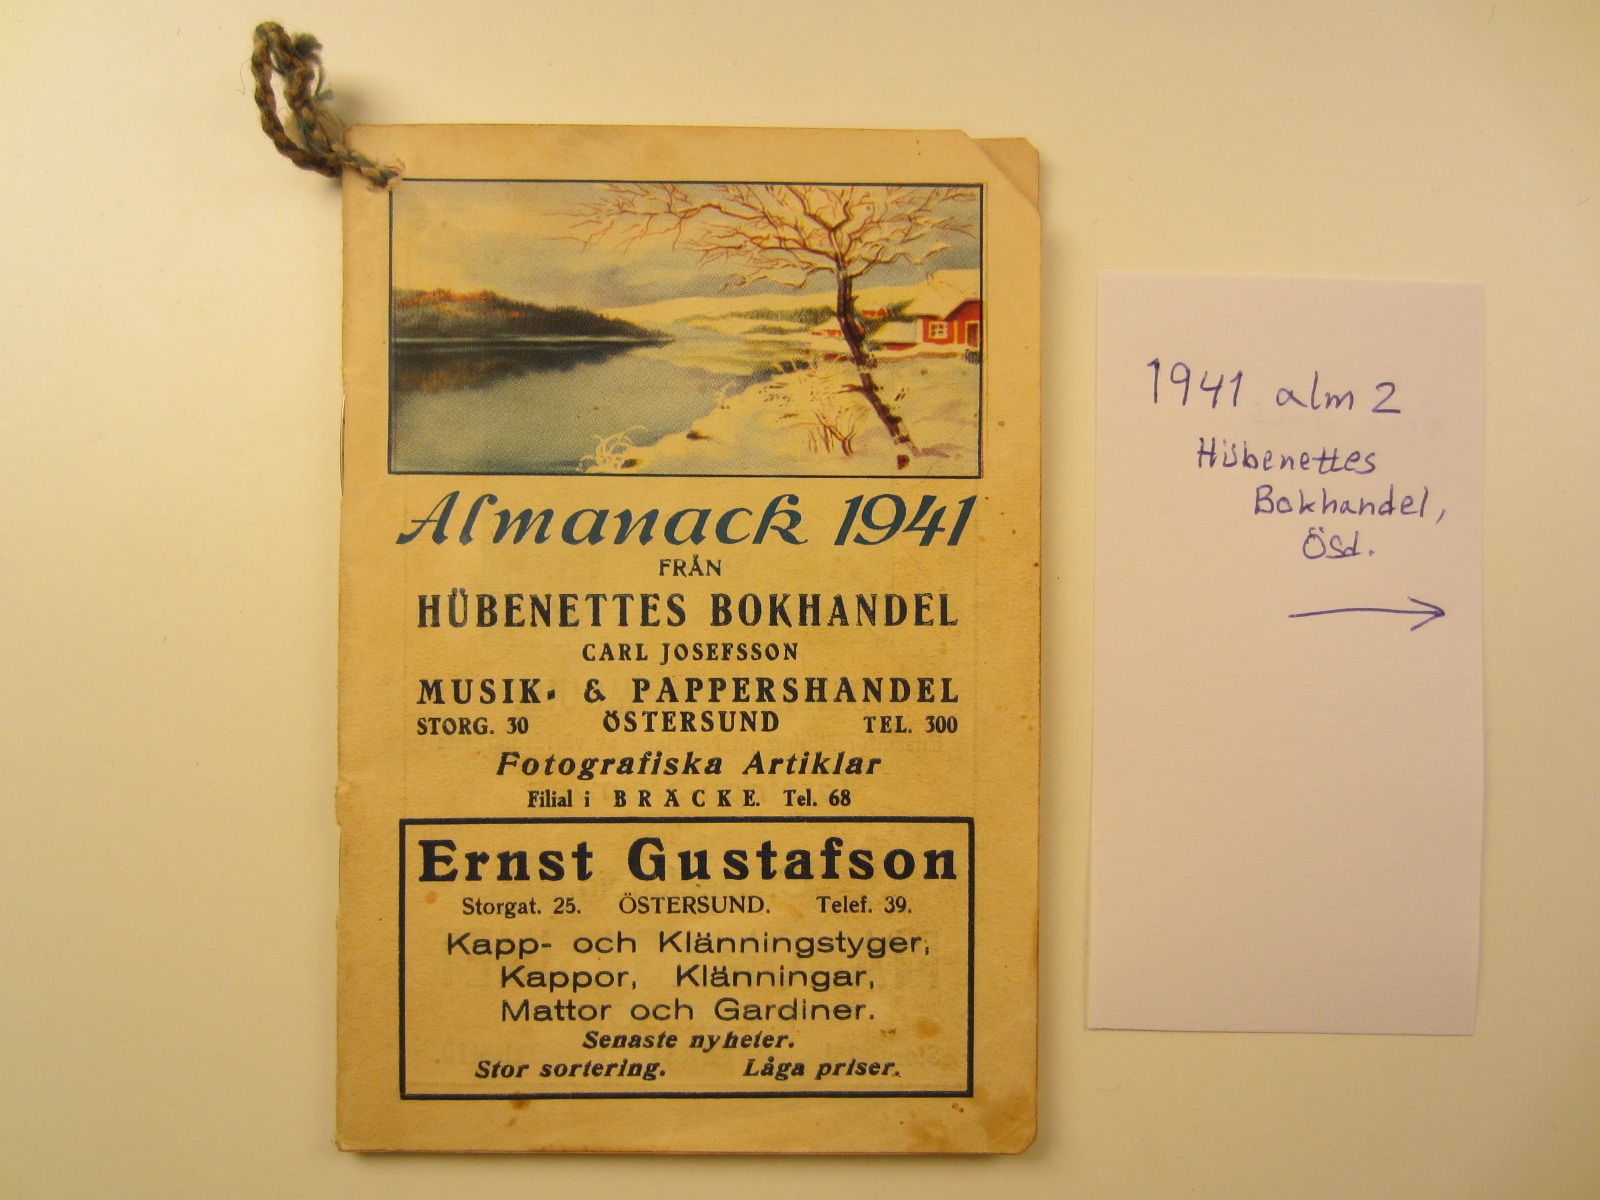 Almanack 1941
FRÅN
HÜBENETTES BOKHANDEL
CARL JOSEFSSON
MUSIK- & PAPPERSHANDEL
STORG. 30 ÖSTERSUND TEL. 300
Fotografiska Artiklar
Filial i BRÄCKE. Tel. 68
Ernst Gustafson
Storgat. 25. ÖSTERSUND. Telef. 39.
Kapp- och Klänningstyger,
Kappor, Klänningar,
Mattor och Gardiner.
Senaste nyheter.
Stor sortering. Låga priser.
1941 alm 2
Hübenettes
Bokhandel,
Ösd.